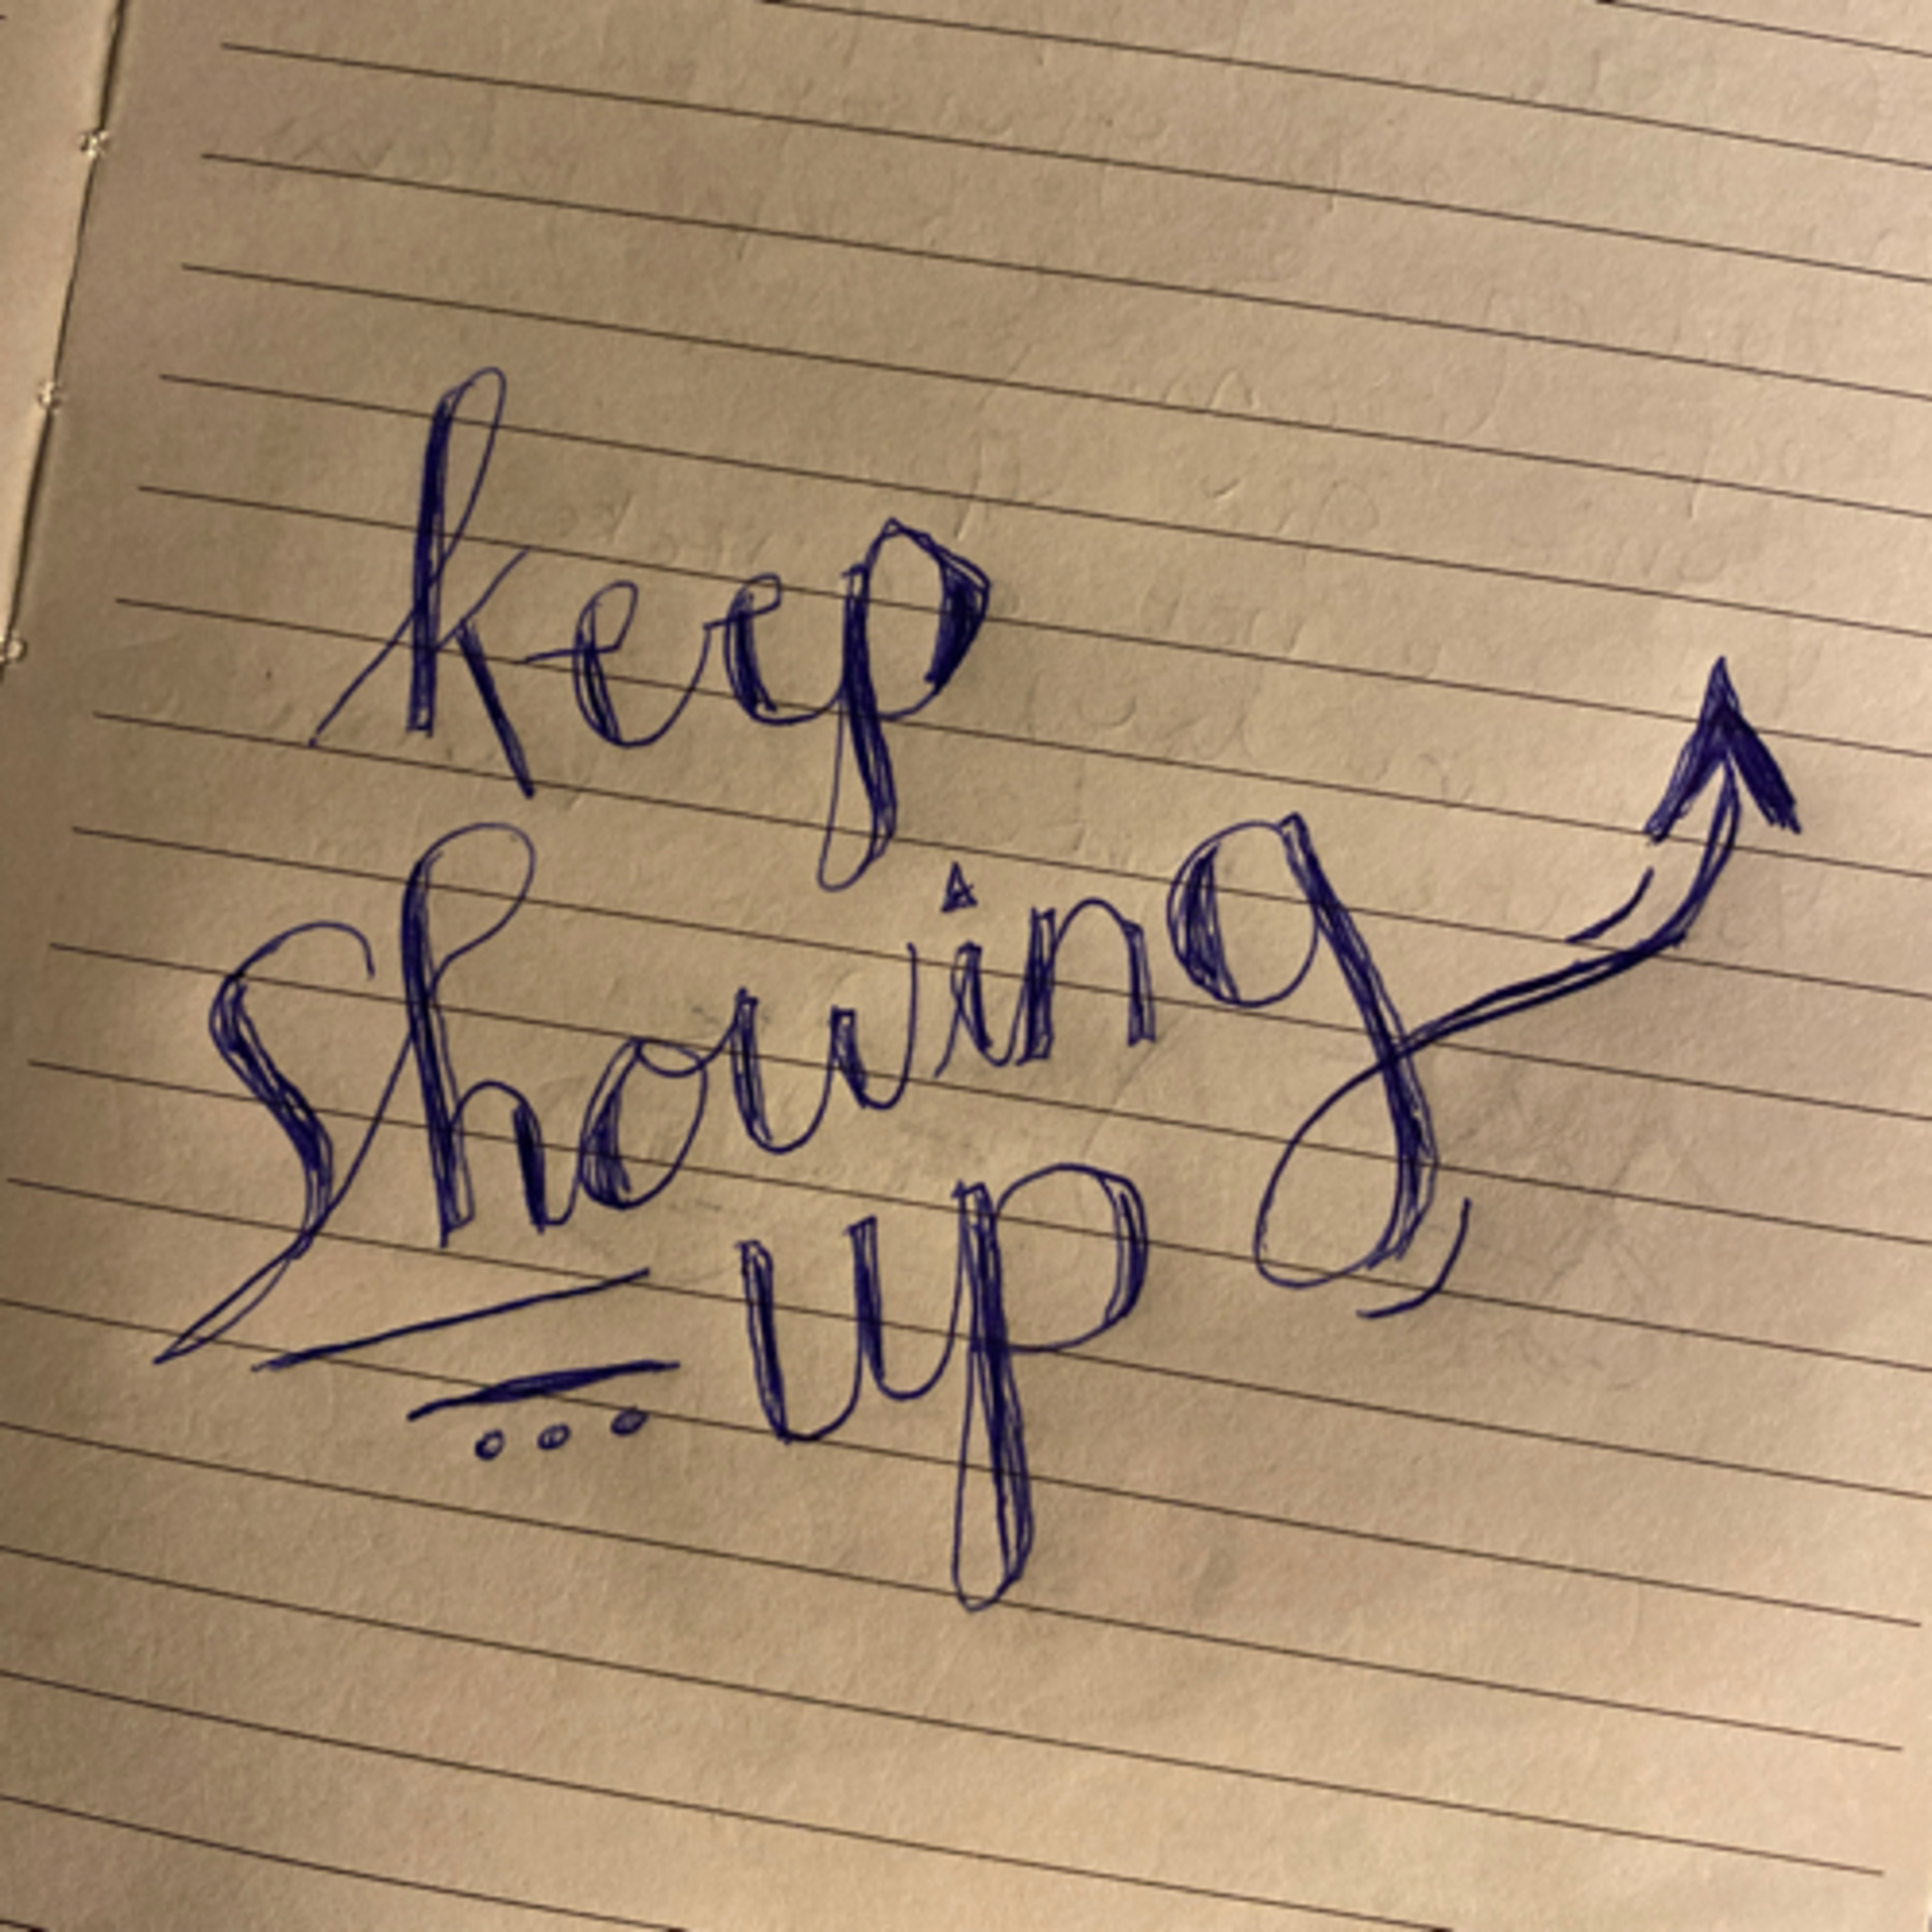 keep
showing
up